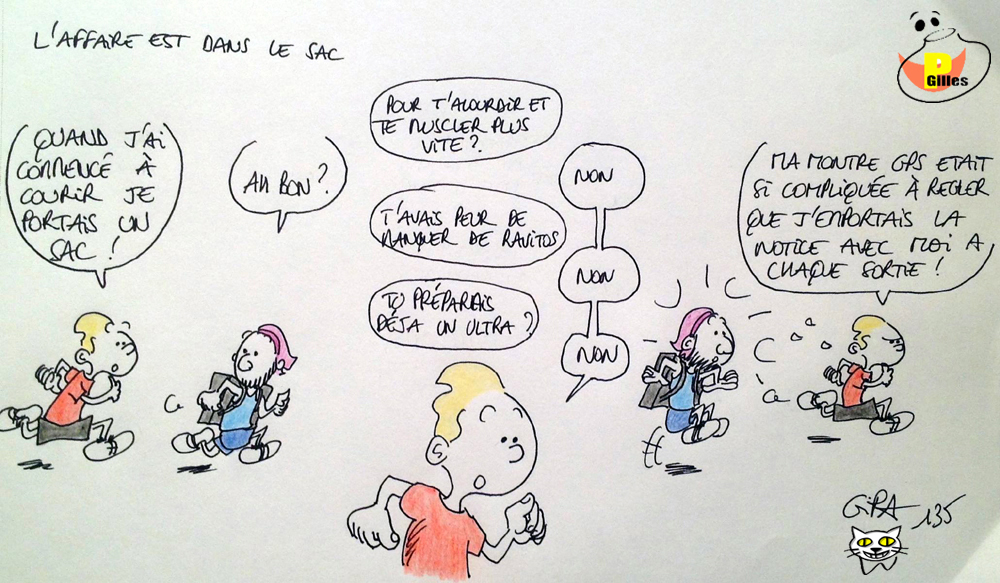 L'AFFAIRE EST DANS LE SAC
P
Gilles
QUAND J'AI
COMMENCÉ À
COURIR JE
PORTAIS UN
SAC !
AH BON ?
POUR T'ALOURDIR ET
TE MUSCLER PLUS
VITE ?
NON
T'AVAIS PEUR DE
MANQUER DE RAVITOS
NON
TU PRÉPARAIS
DÉJA UN ULTRA ?
NON
MA MONTRE GPS ETAIT
SI COMPLIQUÉE À REGLER
QUE J'EMPORTAIS LA
NOTICE AVEC MOI A
CHAQUE SORTIE !
GIPA 135